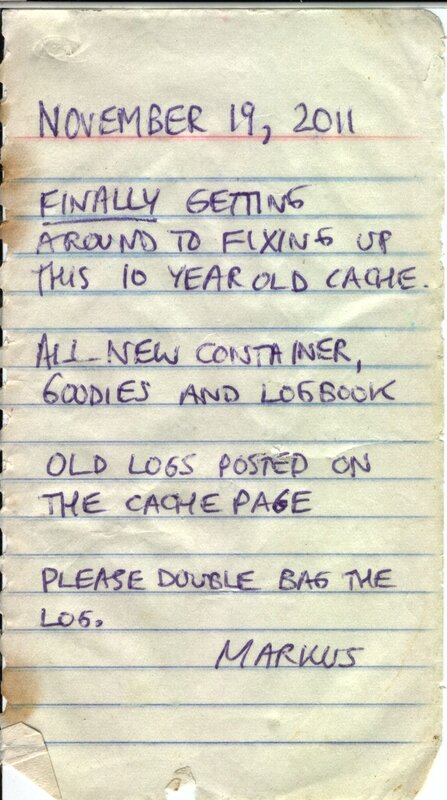 NOVEMBER 19, 2011
FINALLY GETTING
AROUND TO FIXING UP
THIS 10 YEAR OLD CACHE.
ALL NEW CONTAINER,
GOODIES AND LOGBOOK
OLD LOGS POSTED ON
THE CACHE PAGE
PLEASE DOUBLE BAG THE
LOG.
MARKUS